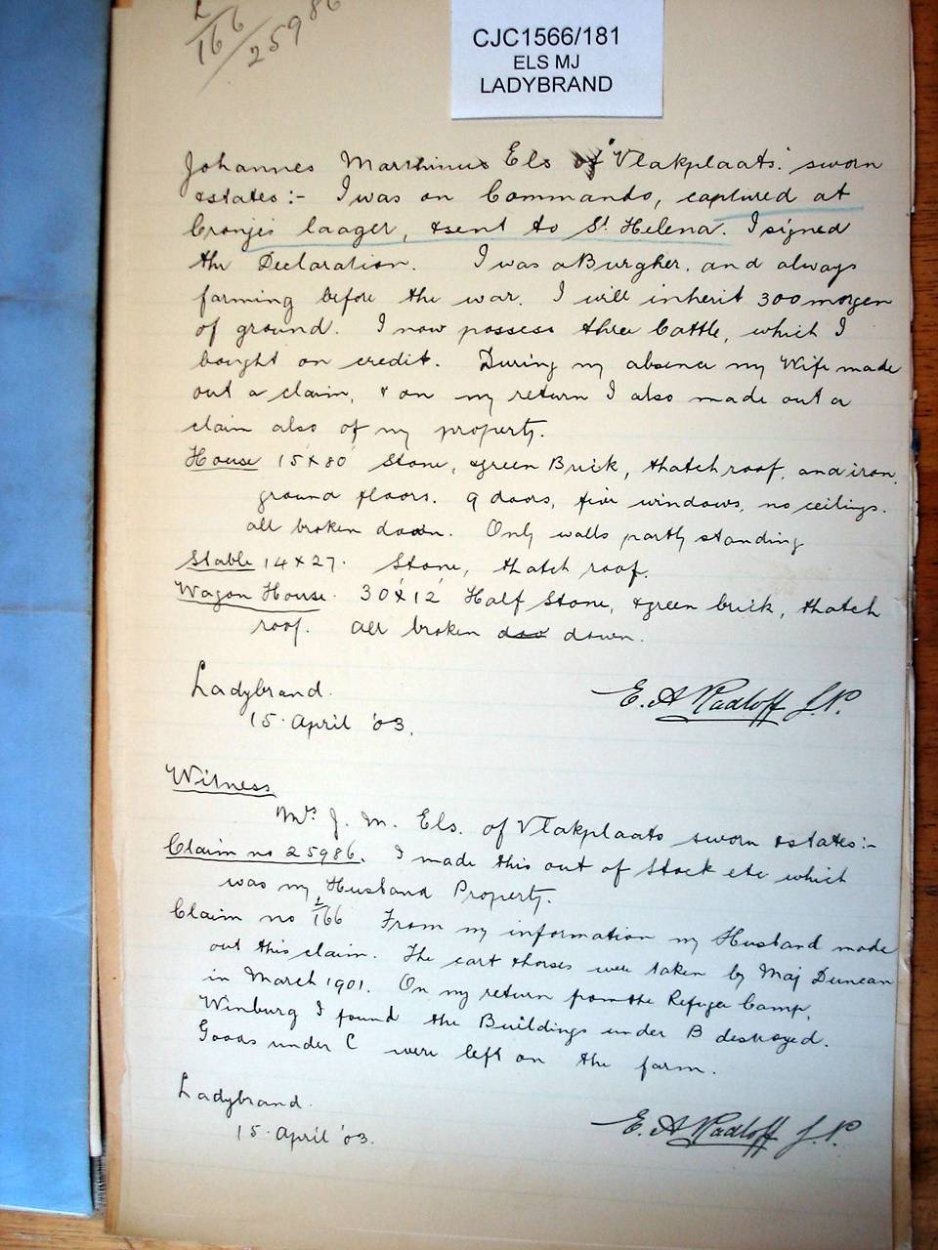 L/166/25986
CJC1566/181
ELS MJ
LADYBRAND
Johannes Marthinus Els of "Vlakplaats" sworn
& states:- I was on Commando, captured at
Cronjes laager, & sent to St Helena. I signed
the Declaration. I was a Burgher, and always
farming before the war. I will inherit 300 morgen
of ground. I now possess three Cattle, which I
bought on credit. During my absence my Wife made
out a claim, & on my return I also made out a
claim also of my property.
House 15 x 80' Stone, & green Brick, thatch roof, and iron,
ground floors. 9 doors, five windows, no ceilings.
all broken down. Only walls partly standing
Stable 14 x 27. Stone, thatch roof.
Wagon House. 30' x 12' Half Stone, & green brick, thatch
roof. all broken down.
Ladybrand.
15. April '03.
E. A Radloff J.P.
Witness
Mrs J. M. Els. of Vlakplaats sworn & states:-
Claim no 25986. I made this out of Stock etc which
was my Husband Property.
Claim no L/166 From my information my Husband made
out this claim. The cart & horses were taken by Maj Duncan
in March 1901. On my return from the Refugee Camp,
Winburg I found the Buildings under B destroyed.
Goods under C were left on the farm.
Ladybrand.
15. April '03.
E. A Radloff J.P.